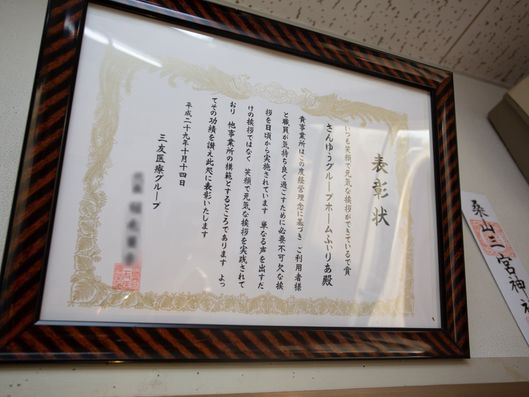 表彰状
いつも笑顔で元気な挨拶ができているで賞
さんゆうグループホームふぃりあ殿
貴事業所はこの度経営理念に基づき ご利用者様
と職員が気持ち良く過ごすために必要不可欠な挨
拶を日頃から実施されています 単なる声を出すだ
けの挨拶ではなく 笑顔で元気な挨拶を実践されて
おり 他事業所の模範とするところであります よっ
てその功績を讃え此処に表彰いたします
平成二十九年十月十四日
三友医療グループ
桑山三宮神